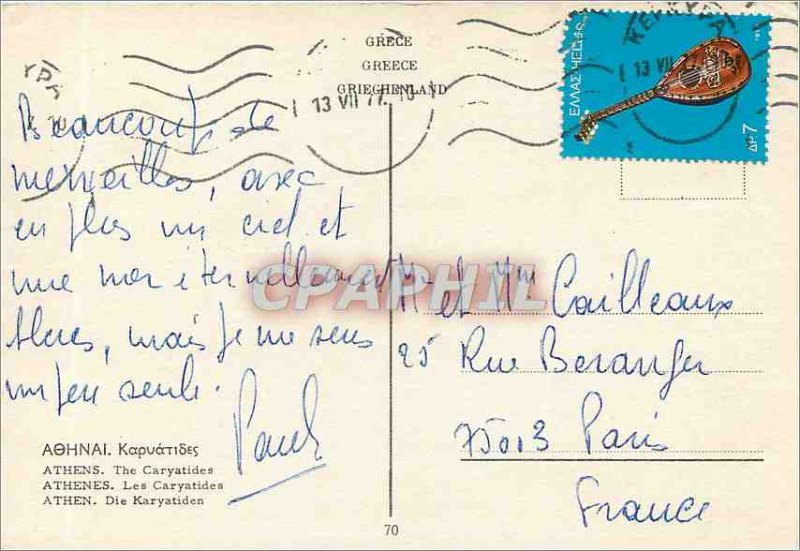 GRECE
GREECE
GRIECHENLAND
13 VII 77.
ΚΕΡΚΥΡΑ
13 VII
ΕΛΛΑΣ-HELLAS
ΔΡ. 7
Beaucoup de
merveilles, avec
en plus un ciel et
une mer éternellement
bleus, mais je me sens
un peu seule.
Paule
M. et Mm Cailleaux
25 Rue Beranger
75013 Paris
France
ΑΘΗΝΑΙ. Καρυάτιδες
ATHENS. The Caryatides
ATHENES. Les Caryatides
ATHEN. Die Karyatiden
70
CPAPHIL